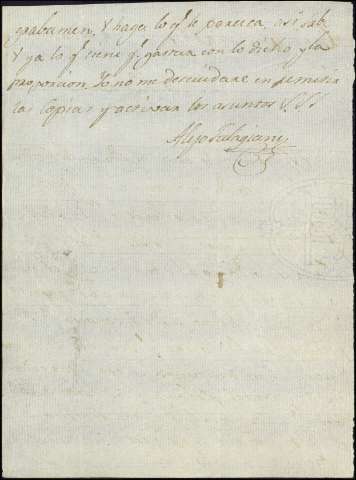 grabamen, Y haga lo q.e le paresca asi sabe
Y ya lo q.e tiene q.e gastar con lo dicho y la
proporcion Yo no me descuidare en remitir
las Copias y activar los asuntos
Alejo